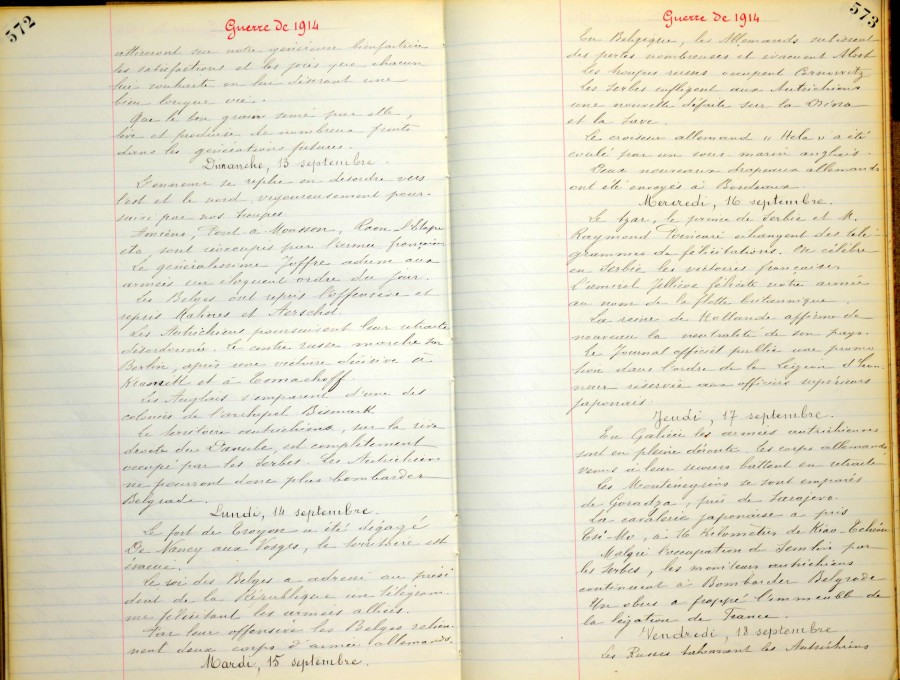 572
Guerre de 1914
attireront sur notre généreuse bienfaitrice
les satisfactions et les joies que chacun
lui souhaite en lui désirant une
bien longue vie.
Que le bon grain semé par elle,
lève et produise de nombreux fruits
dans les générations futures.
Dimanche, 13 septembre.
L'ennemi se replie en désordre vers
l'est et le nord, vigoureusement pour-
suivi par nos troupes.
Amiens, Pont à Mousson, Raon l'Etape
etc sont réoccupés par l'armée française
Le généralissime Joffre adresse aux
armées un éloquent ordre du jour.
Les Belges ont repris l'offensive et
repris Malines et Aerschot.
Les Autrichiens poursuivent leur retraite
désordonnée. Le centre russe marche sur
Berlin, après une victoire décisive à
et à
Les Anglais s'emparent d'une des
colonies de l'archipel Bismark
Le territoire autrichien, sur la rive
droite du Danube, est complètement
occupé par les Serbes. Les Autrichiens
ne pourront donc plus bombarder
Belgrade.
Lundi, 14 septembre.
Le fort de Troyon a été dégagé
De Nancy aux Vosges, le territoire est
évacué.
Le roi des Belges a adressé au prési
dent de la République un télégram-
me félicitant les armées alliées.
Par leur offensive les Belges retien-
nent deux corps d'armée allemands.
Mardi, 15 septembre.
573
Guerre de 1914
En Belgique, les Allemands subissent
des pertes nombreuses et évacuent Alost
Les troupes russes occupent Czernovitz
Les Serbes infligent aux Autrichiens
une nouvelle défaite sur la Drina
et la Save.
Le croiseur allemand "Hela" a été
coulé par un sous-marin anglais.
Deux nouveaux drapeaux allemands
ont été envoyés à Bordeaux.
Mercredi, 16 septembre.
Le tzar, le prince de Serbie et M.
Raymond Poincaré échangent des télé-
grammes de félicitations. On célèbre
en Serbie les victoires françaises.
L'amiral Jellicoe félicite notre armée
au nom de la flotte britannique.
La reine de Hollande affirme de
nouveau la neutralité de son pays.
Le Journal officiel publie une promo
tion dans l'ordre de la Légion d'hon-
neur réservée aux officiers supérieurs
japonais.
Jeudi, 17 septembre.
En Galicie les armées autrichiennes
sont en pleine déroute. Les corps allemands
venus à leur secours battent en retraite
Les Monténégrins se sont emparés
de Goradza, près de Sarajevo.
La cavalerie japonaise a pris
Tsi-Mo, à 16 kilomètres de Kiao-Tchéou
Malgré l'occupation de Semlin par
les Serbes, les moniteurs autrichiens
continuent à Bombarder Belgrade
Un obus a frappé l'immeuble de
la légation de France.
Vendredi, 18 septembre
Les Russes talonnant les Autrichiens